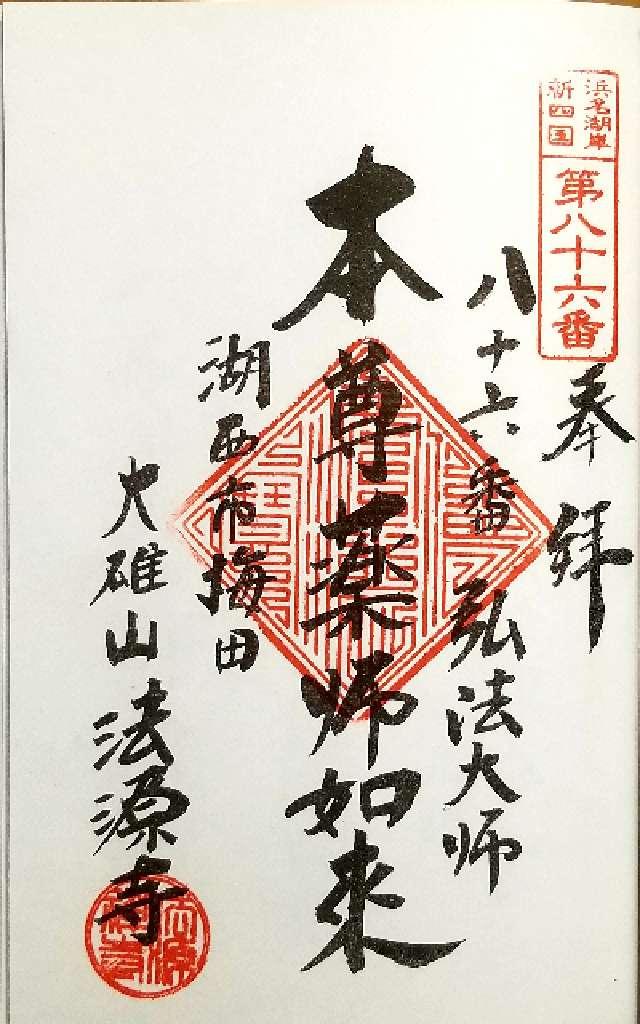 浜名湖岸
新四国
第八十六番
奉拝
八十六番 弘法大師
本尊薬師如来
湖西市梅田
大雄山法源寺